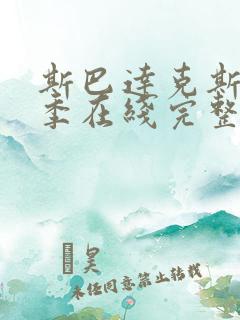 斯巴达克斯
季在线完整
昊
未经同意禁止转载